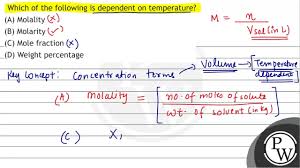 Which of the following is dependent on temperature?
(A) Molality (x)
(B) Molarity (✓)
(C) Mole fraction (x)
(D) Weight percentage
M = n / Vsol(in L)
Key Concept: Concentration terms → Volume → [Temperature dependent]
(A) Molality = [no. of moles of solute / wt. of solvent (in kg)]
(C) X,
PW